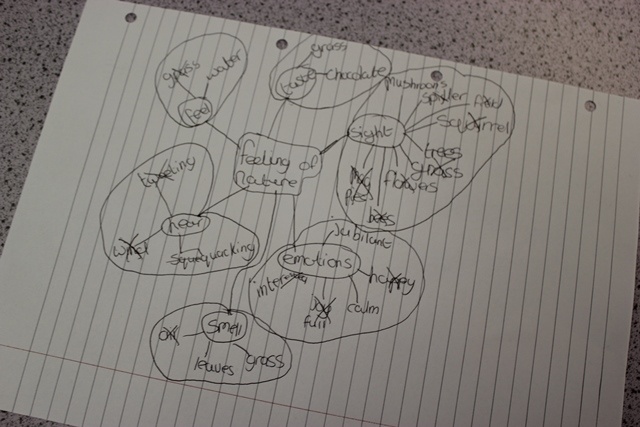 grass
water
feel
grass
taste
chocolate
mushrooms
spider
squirrel
sight
trees
grass
flowers
bees
feeling of
nature
tweeting
hear
wind
squequacking
jubilant
emotions
happy
calm
joy
full
smell
air
leaves
grass